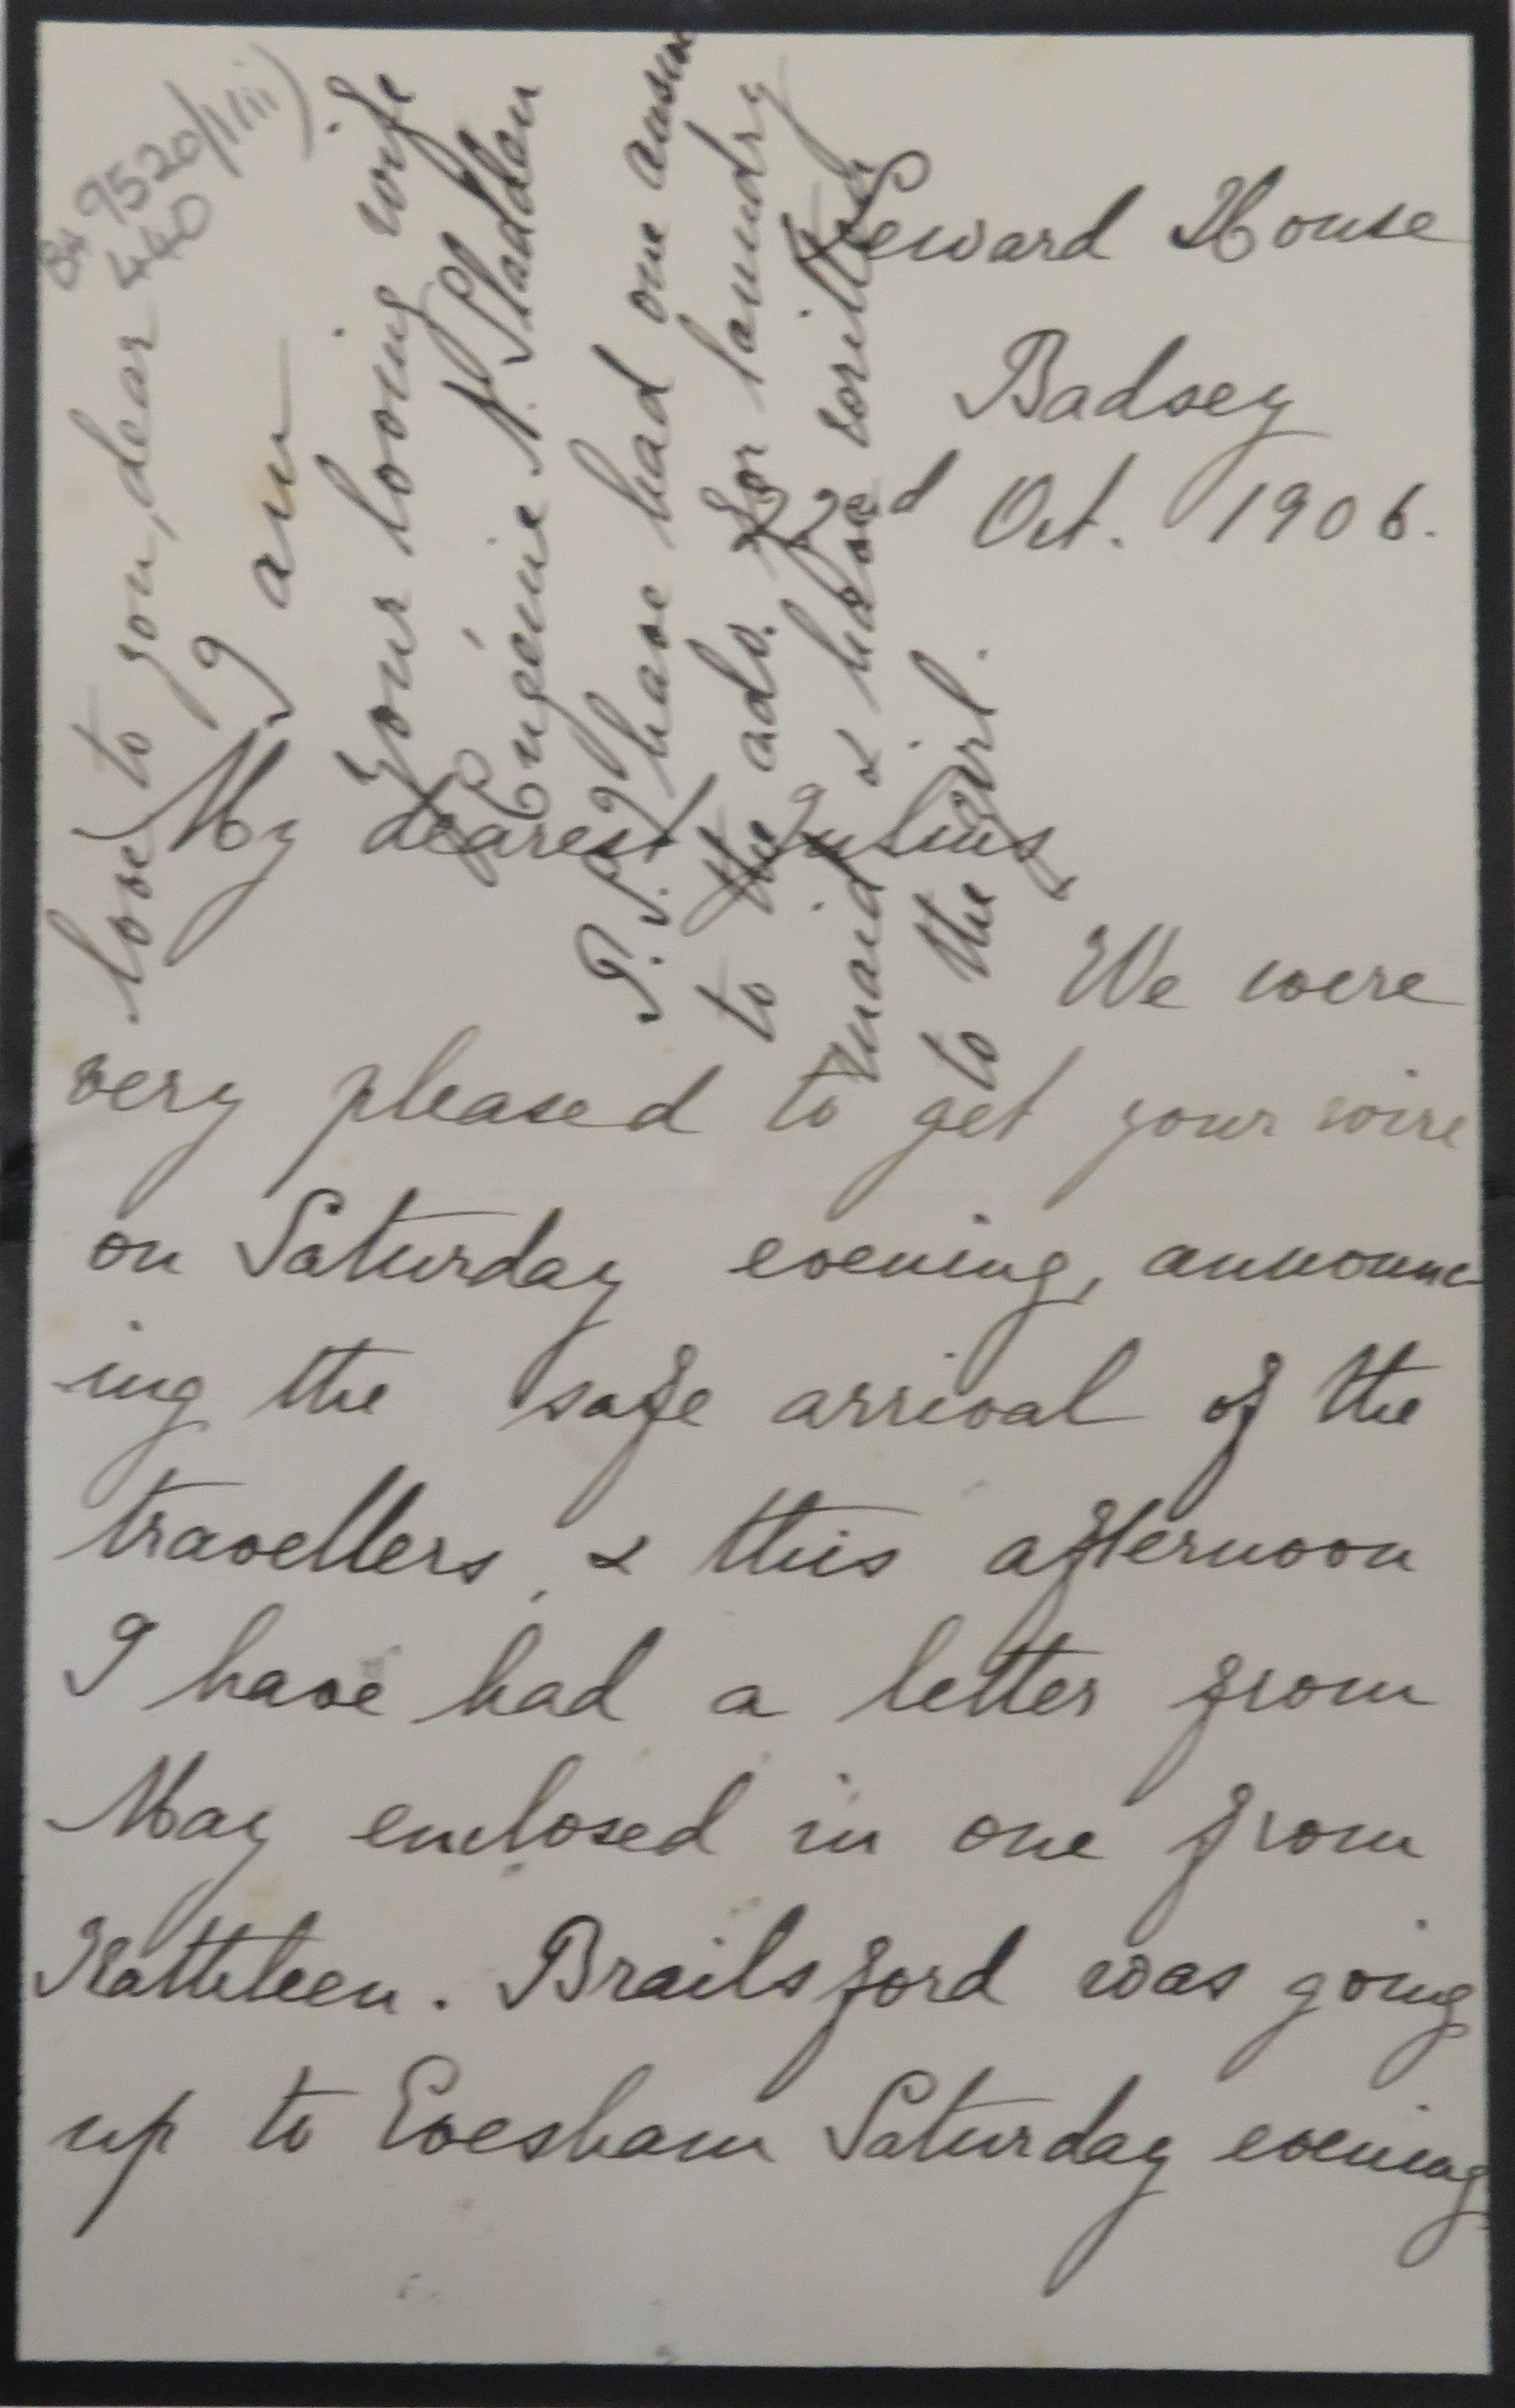 Seward House
Badsey
22nd Oct. 1906.
My dearest Julius,
We were
very pleased to get your wire
on Saturday evening, announc-
ing the safe arrival of the
travellers, & this afternoon
I have had a letter from
May enclosed in one from
Kathleen. Brailsford was going
up to Evesham Saturday evening
love to you, dear
I am
Your loving wife
Eugénie N. Sladden
P.S. I have had one answer
to the ads. for laundry
maid & have written
to the girl.
9520/1/iii)
440